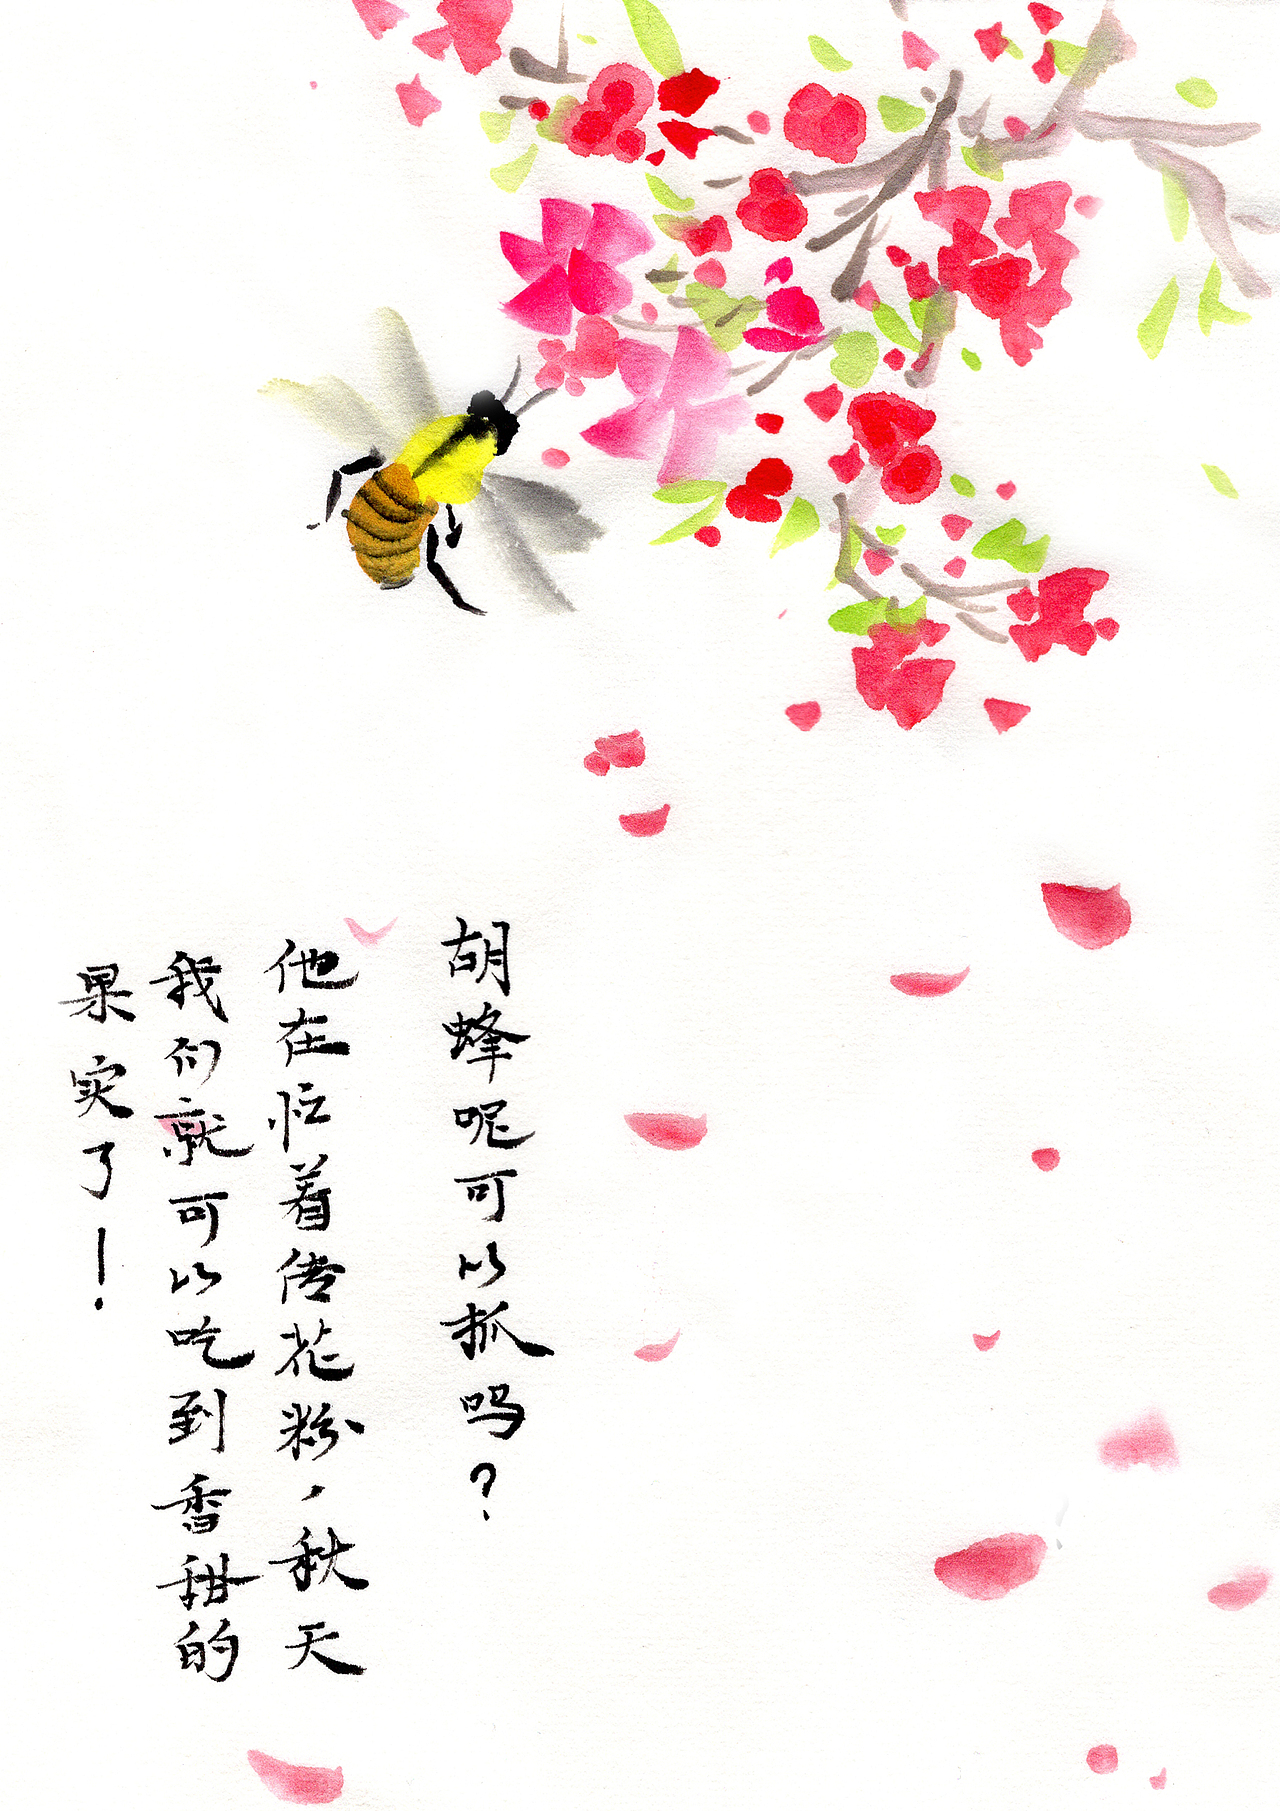 胡蜂呢可以抓吗？
他在忙着传花粉，秋天
我们就可以吃到香甜的
果实了！